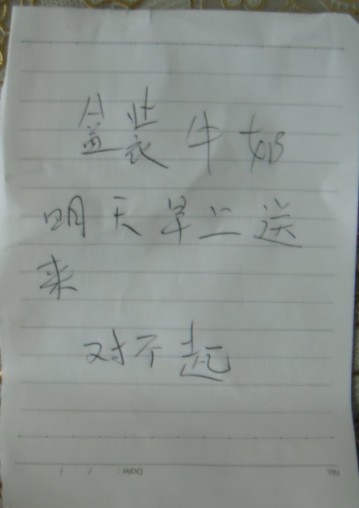 盒装牛奶
明天早上送
来
对不起
No.
Date: / /